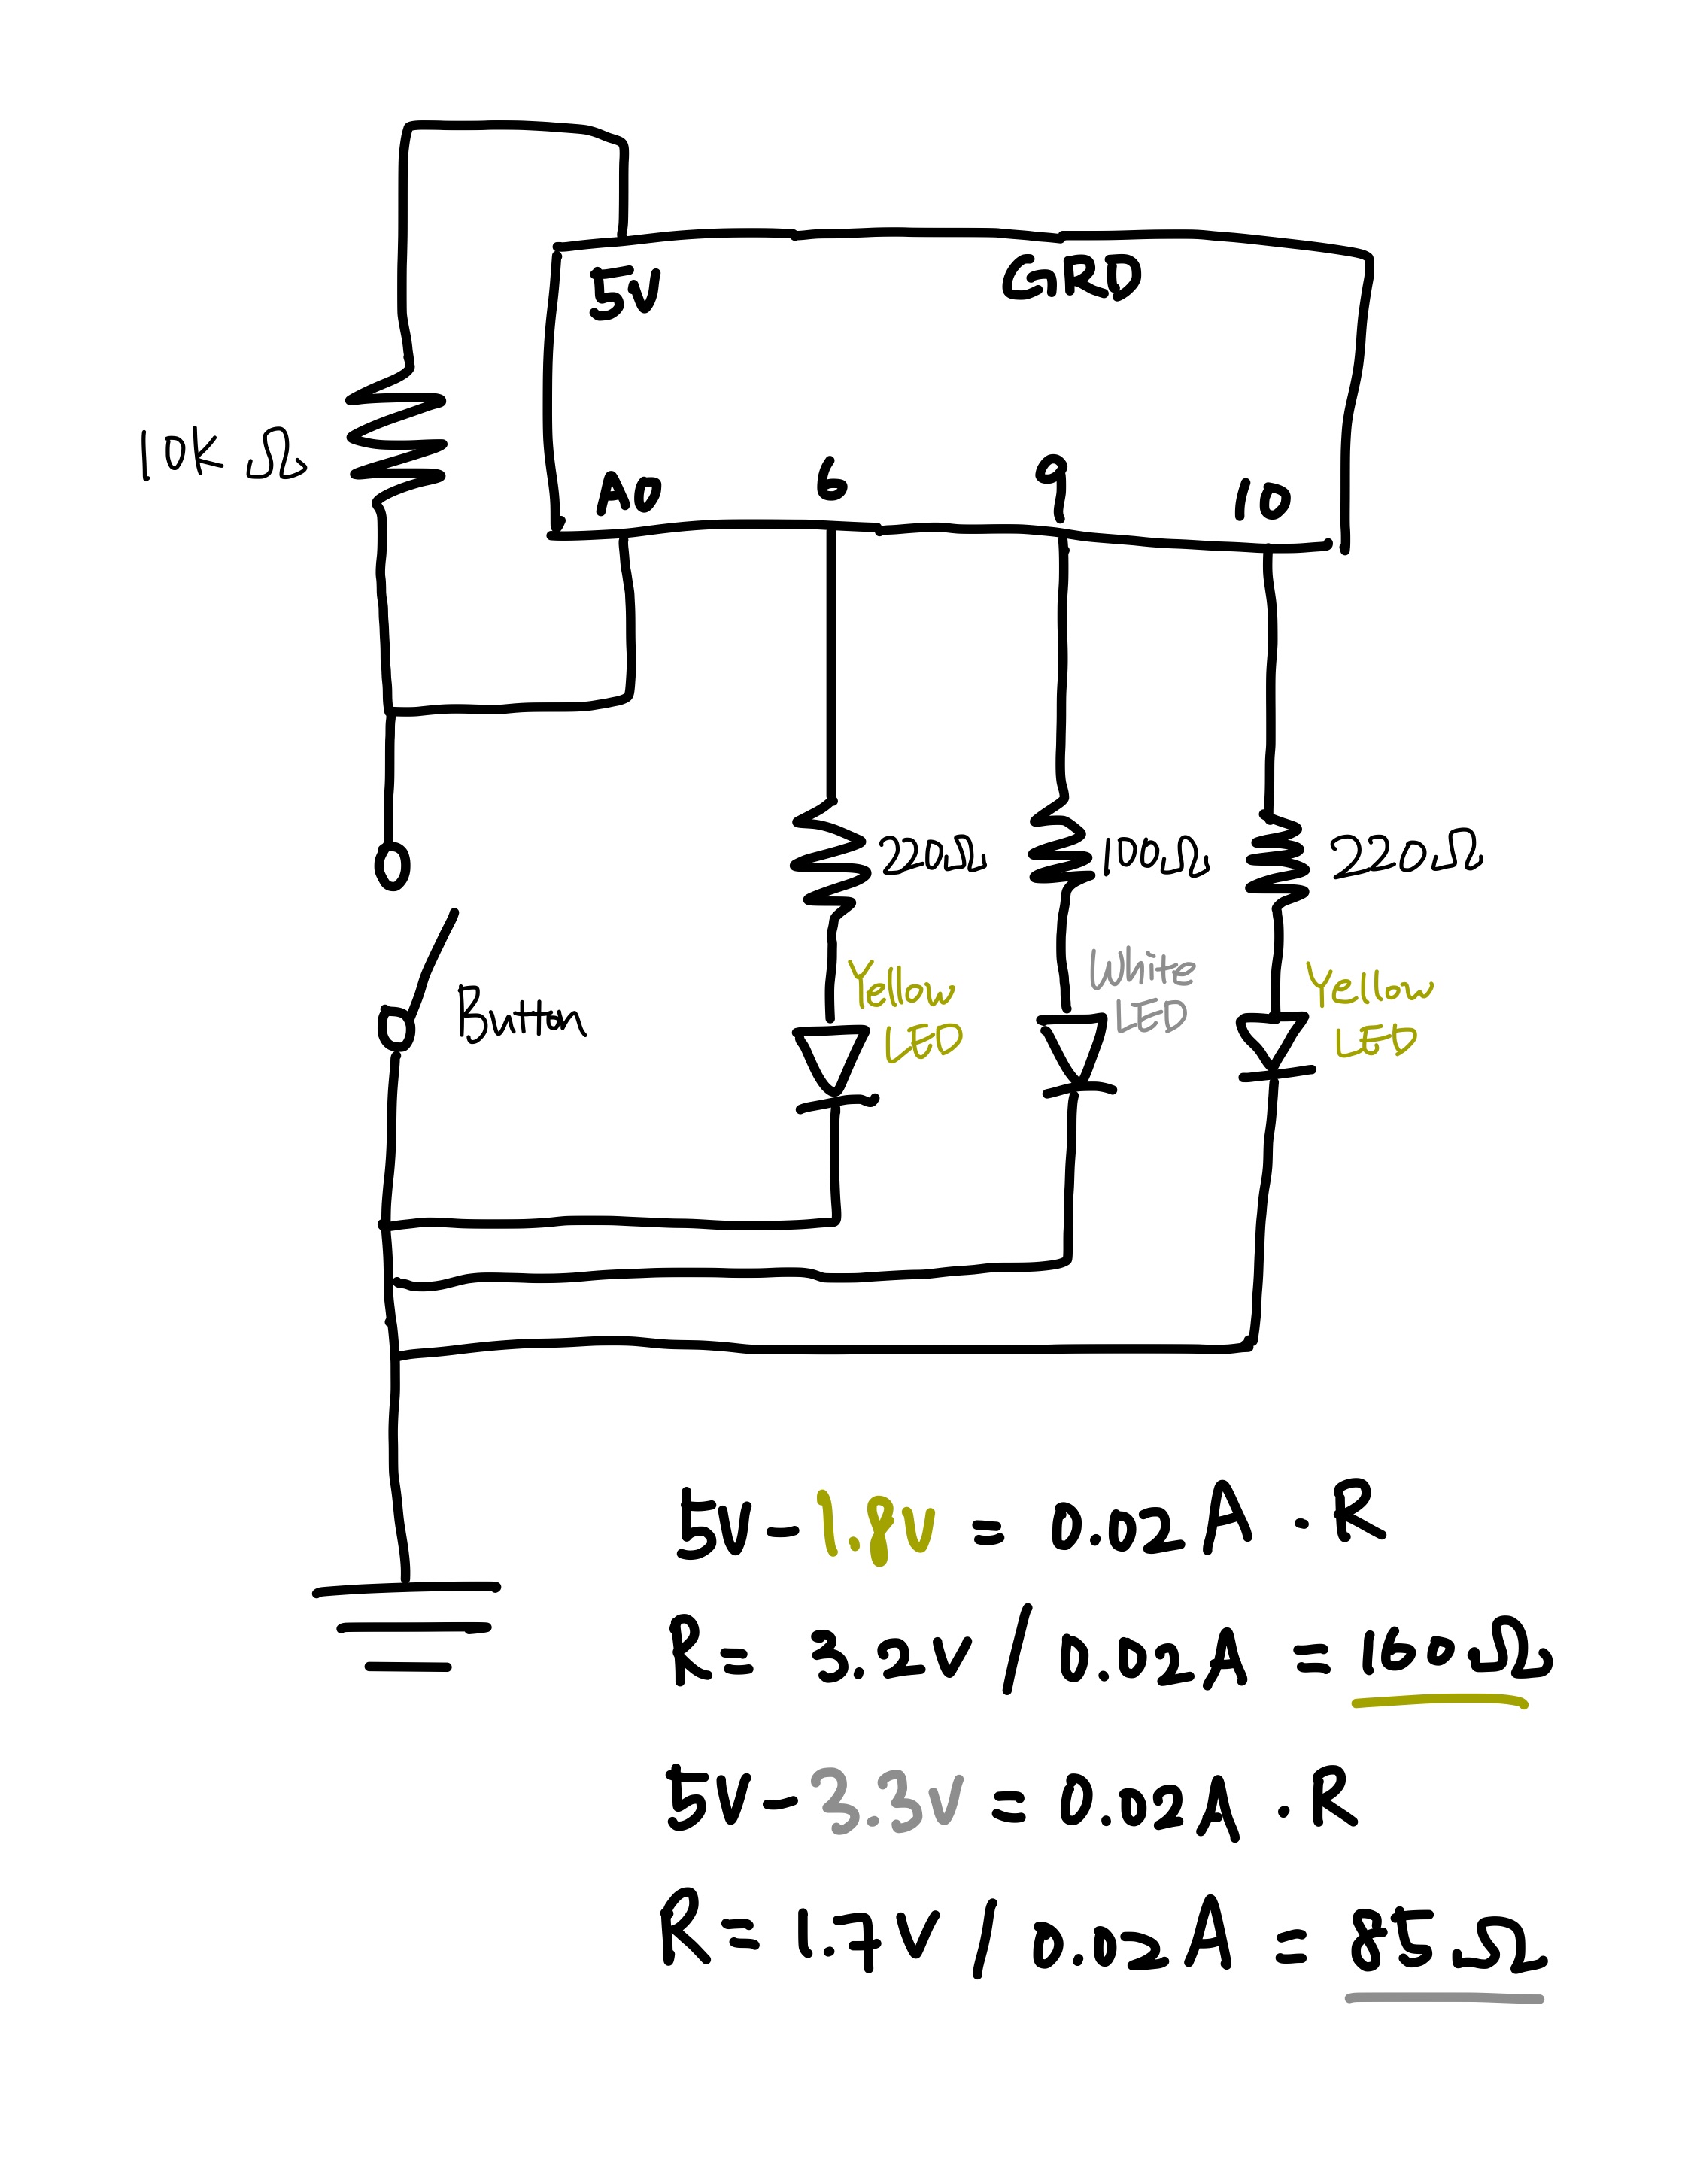 5V GRD
10K Ω
A0 6 9 10
220Ω 100Ω 220Ω
Yellow LED
White LED
Yellow LED
Button
5V - 1.8V = 0.02 A · R
R = 3.2V / 0.02A = 160Ω
5V - 3.3V = 0.02A · R
R = 1.7V / 0.02A = 85Ω